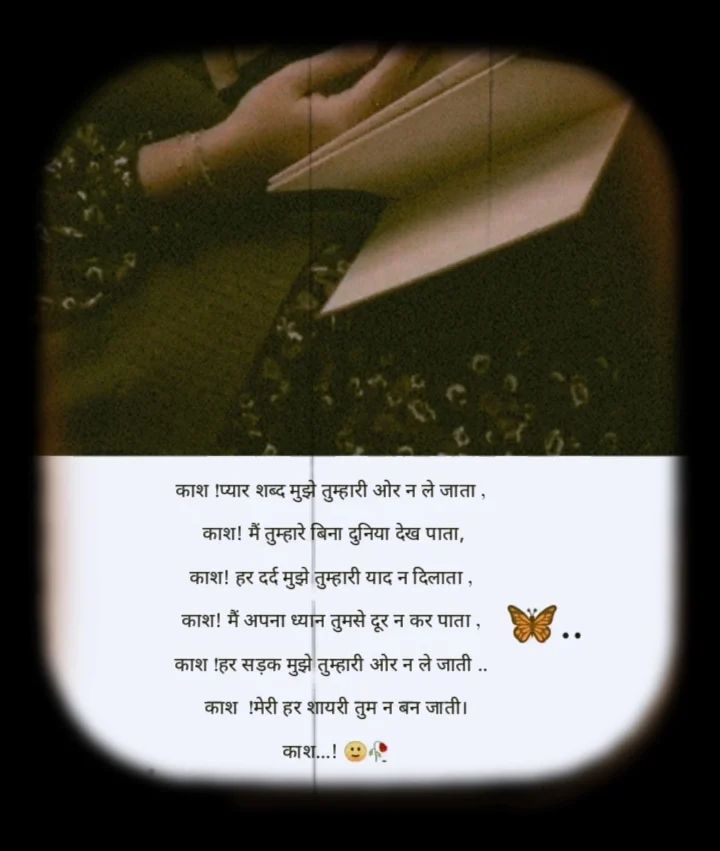 काश !प्यार शब्द मुझे तुम्हारी ओर न ले जाता ,
काश! मैं तुम्हारे बिना दुनिया देख पाता,
काश! हर दर्द मुझे तुम्हारी याद न दिलाता ,
काश! मैं अपना ध्यान तुमसे दूर न कर पाता , 🦋..
काश !हर सड़क मुझे तुम्हारी ओर न ले जाती ..
काश !मेरी हर शायरी तुम न बन जाती।
काश...! 🙂🥀